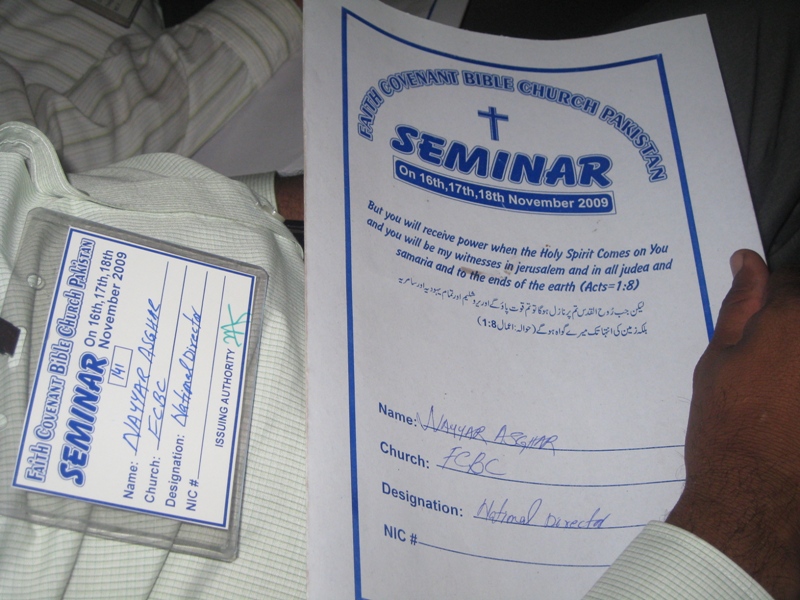 FAITH COVENANT BIBLE CHURCH PAKISTAN
SEMINAR
On 16th,17th,18th November 2009
But you will receive power when the Holy Spirit Comes on You
and you will be my witnesses in jerusalem and in all judea and
samaria and to the ends of the earth (Acts=1:8)
لیکن جب رُوح القدس تم پر نازل ہوگا تو تم قوت پاؤ گے اور یروشلیم اور تمام یہودیہ اور سامریہ
بلکہ زمین کی انتہا تک میرے گواہ ہو گے (حوالہ: اعمال 1:8)
Name: NAYYAR ASGHAR
Church: FCBC
Designation: National Director
NIC #
FAITH COVENANT BIBLE CHURCH PAKISTAN
SEMINAR On 16th,17th,18th
November 2009
141
Name: NAYYAR ASGHAR
Church: FCBC
Designation: National Director
NIC #
ISSUING AUTHORITY